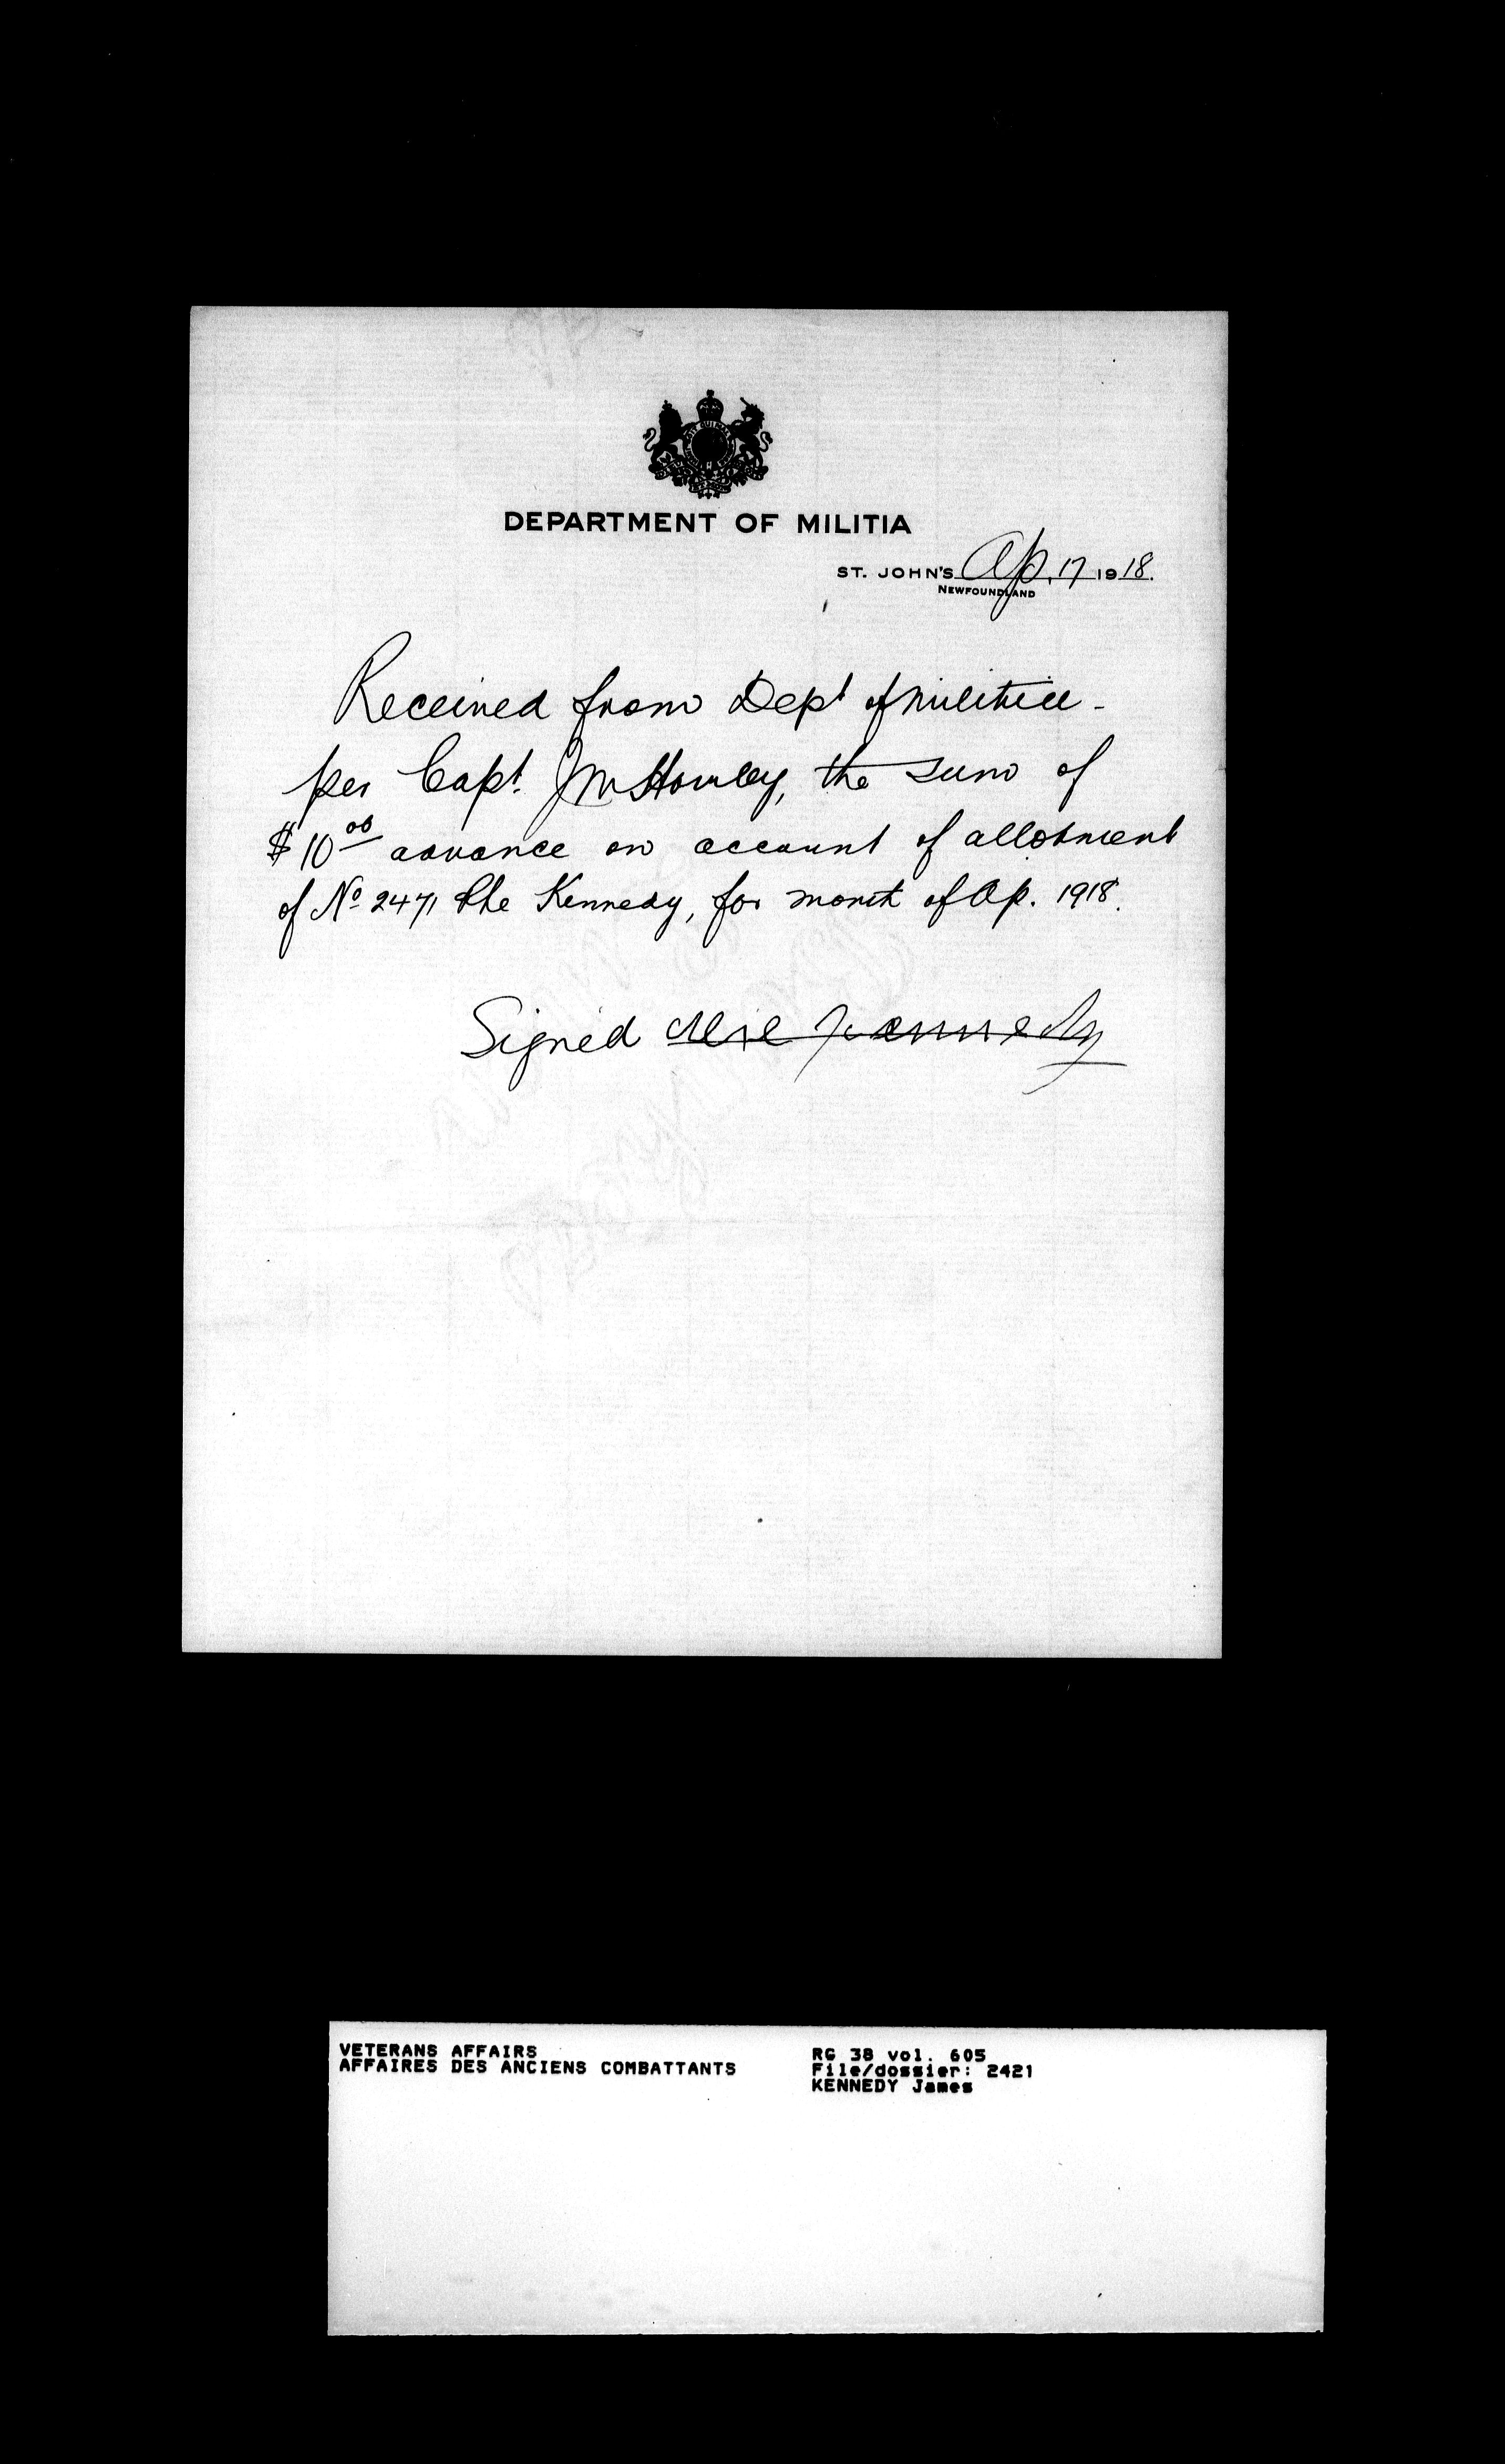 DEPARTMENT OF MILITIA
ST. JOHN'S Ap. 17 1918.
NEWFOUNDLAND
Received from Dept of Militia -
per Capt. JM Howley, the sum of
$10.00 advance on account of allotment
of No 2471 Pte Kennedy, for month of Ap. 1918.
Signed Kennedy
VETERANS AFFAIRS
AFFAIRES DES ANCIENS COMBATTANTS
RG 38 vol. 605
File/dossier: 2421
KENNEDY James